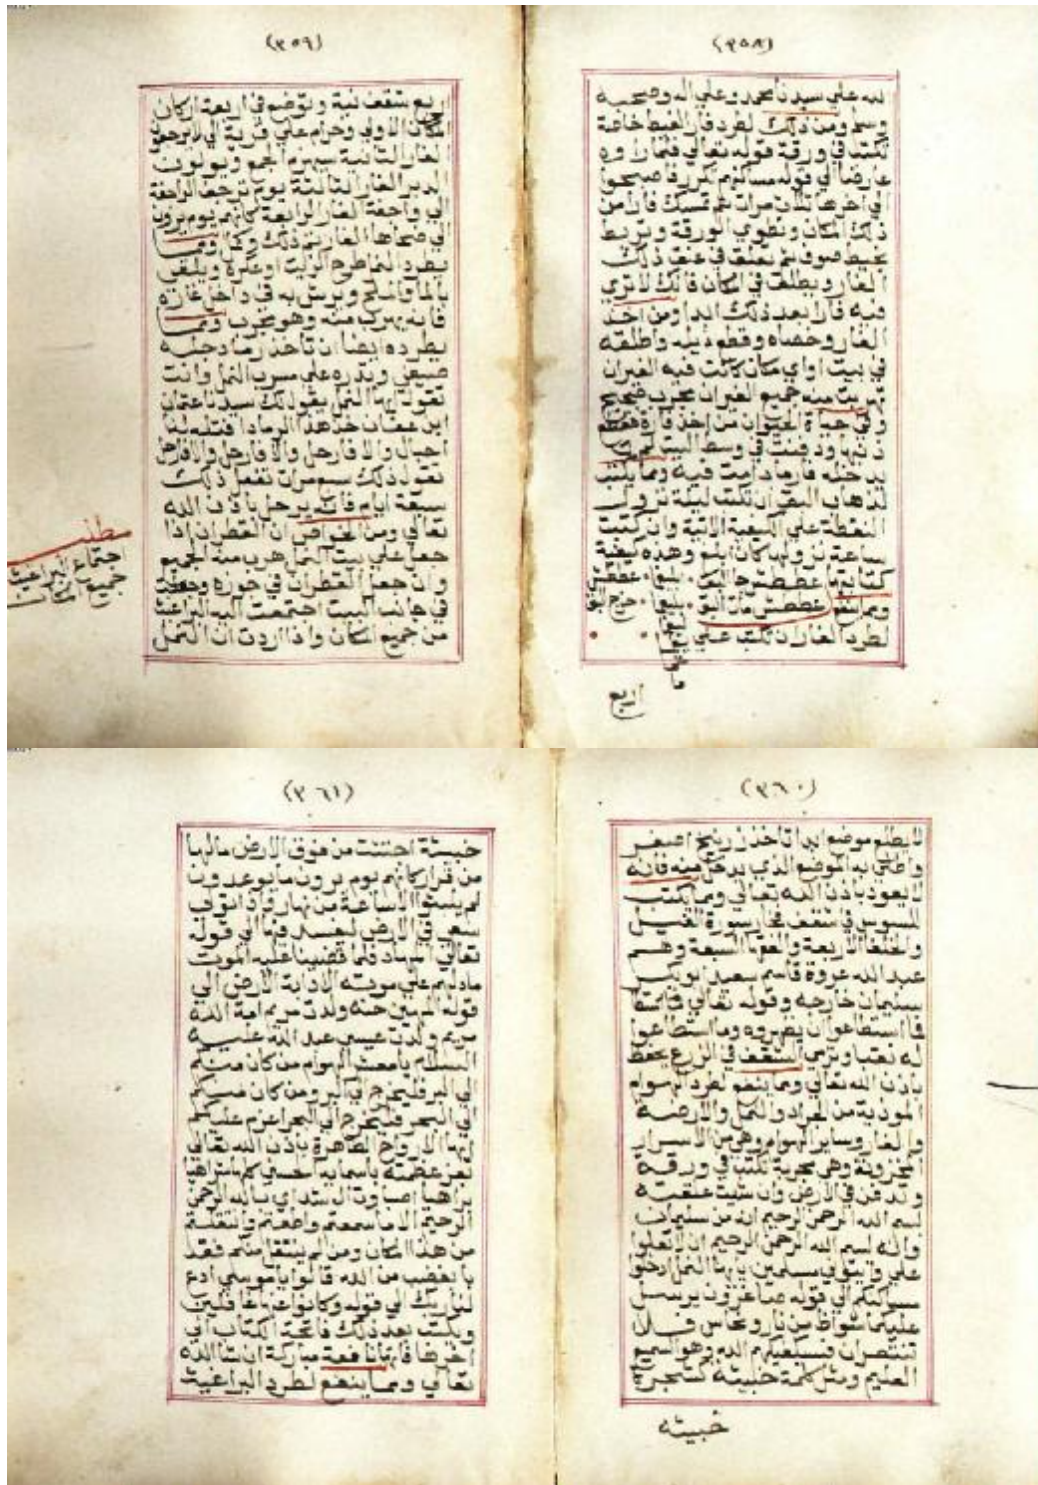 (٣٥٨)
لله علي سيدنا محمد وعلي اله وصحبه
وسلم ومن ذلك لطرد فار الغيط خاصة
تكتب في ورقة قوله تعالي فلما راوه
عارضا الي قوله مساكنهم تكرر فاصبحوا
الي اخرها ثلاث مرات ثم تمسك فارا من
ذلك المكان وتطوي الورقة وتربط
بخيط صوف ثم تعلق في عنق ذلك
الفار ويطلق في المكان فانك لا تري
فيه فارا بعد ذلك ابدا ومن اخذ
الفار وخصاه وقطع ذيله واطلقه
في بيت او اي مكان كانت فيه الفيران
هربت منه جميع الفيران مجرب صحيح
وفي حياة الحيوان من اخذ فارة وقطع
ذنبها ودفنت في وسط البيت لم
يدخله فار ما دامت فيه ومما يكتب
لذهاب البق ان تكتب ليلة نزول
النقطة علي الكيفية الاتية وان كتبت
ساعة نزولها كان ابلغ وهذه كيفية
كتابتها
عططش مات البق
لطرد الفار ان تكتب علي
اربع
(٣٥٩)
اربع شقف نية وتوضع في اربعة اركان
المكان الاولي وحرام علي قرية الي لا يرجعون
الفار الثانية سيهزم الجمع ويولون
الدبر الفار الثالثة يوم ترجف الراجفة
الي واجفة الفار الرابعة كانهم يوم يرون
الي ضحاها الفار يتم ذلك وكل ومما
يطرد النمل طرح الزيت او عكره ويلقي
بالماء والملح ويرش به في داخل غاره
فانه يهرب منه وهو مجرب ومما
يطرده ايضا ان تاخذ رماد جلبه
صيفي وتدره علي مسرب النمل وانت
تقول ايها النمل يقول لك سيدنا عثمان
ابن عفان خذ هذا الرماد افتله لنا
احبال والا فارحل والا فارحل والا فارحل
تقول ذلك سبع مرات تفعل ذلك
سبعة ايام فانه يرحل باذن الله
تعالي ومن الخواص ان القطران اذا
جعل علي بيت النمل هرب منه الجميع
وان جعل القطران في جوزه وجعلت
في جانب البيت اجتمعت اليه البراغيث
من جميع المكان واذا اردت ان النمل
مطلب
اجتماع البراغيث
جميع المكان
(٣٦٠)
لا يطلع موضع ابدا تاخذ زرنيخ اصفر
واطلي به الموضع الذي يدخل منه فانه
لا يعود باذن الله تعالي ومما يكتب
للسوس في شقف فخار سورة الفيل
والخلفا الاربعة والفقها السبعة وهم
عبد الله عروة قاسم سعيد ابو بكر
سليمان خارجه وقوله تعالي
فما استطاعوا ان يظهروه وما استطاعوا
له نقبا وترمي الشقف في الزرع يحفظ
باذن الله تعالي ومما ينفع لطرد الهوام
الموذية من الجراد والنمل والارضة
والفار وساير الهوام وهي من الاسرار
المخزونة وهي مجربة تكتب في ورقة
وتدفن في الارض وان شيت علقته
بسم الله الرحمن الرحيم انه من سليمان
وانه بسم الله الرحمن الرحيم ان لا تعلوا
علي واتوني مسلمين يا ايها النمل ادخلوا
مساكنكم الي قوله صاغرون يرسل
عليكما شواظ من نار ونحاس فلا
تنتصران فسيكفيكهم الله وهو السميع
العليم ومثل كلمة خبيثة كشجرة
خبيثه
(٣٦١)
خبيثة اجتثت من فوق الارض مالها
من قرار كانهم يوم يرون ما يوعدون
لم يلبثوا الا ساعة من نهار واذا تولي
سعي في الارض ليفسد فيها الي قوله
تعالي المهاد فلما قضينا عليه الموت
ما دلهم علي موته الا دابة الارض الي
قوله المهين حنه ولدت مريم امة الله
مريم ولدت عيسي عبد الله عليه
السلام يا معشر الهوام من كان منكم
الي البر فليخرج الي البر ومن كان منكم
الي البحر فليخرج الي البحر اعزم عليكم
ايها الارواح الطاهرة باذن الله تعالي
بعز عظمته باسمايه الحسني كلها اشراهيا
براهيا اصباوت ال شداي بالله الرحمن
الرحيم الا ما سمعتم واطعتم وانتقلتم
من هذا المكان ومن لم ينتقل منكم فقد
با بغضب من الله قالوا يا موسي ادع
لنا ربك الي قوله وكانوا عنها غافلين
ويكتب بعد ذلك فاتحة الكتاب الي
اخرها فانها نافعة مباركة ان شا الله
تعالي ومما ينفع لطرد البراغيث